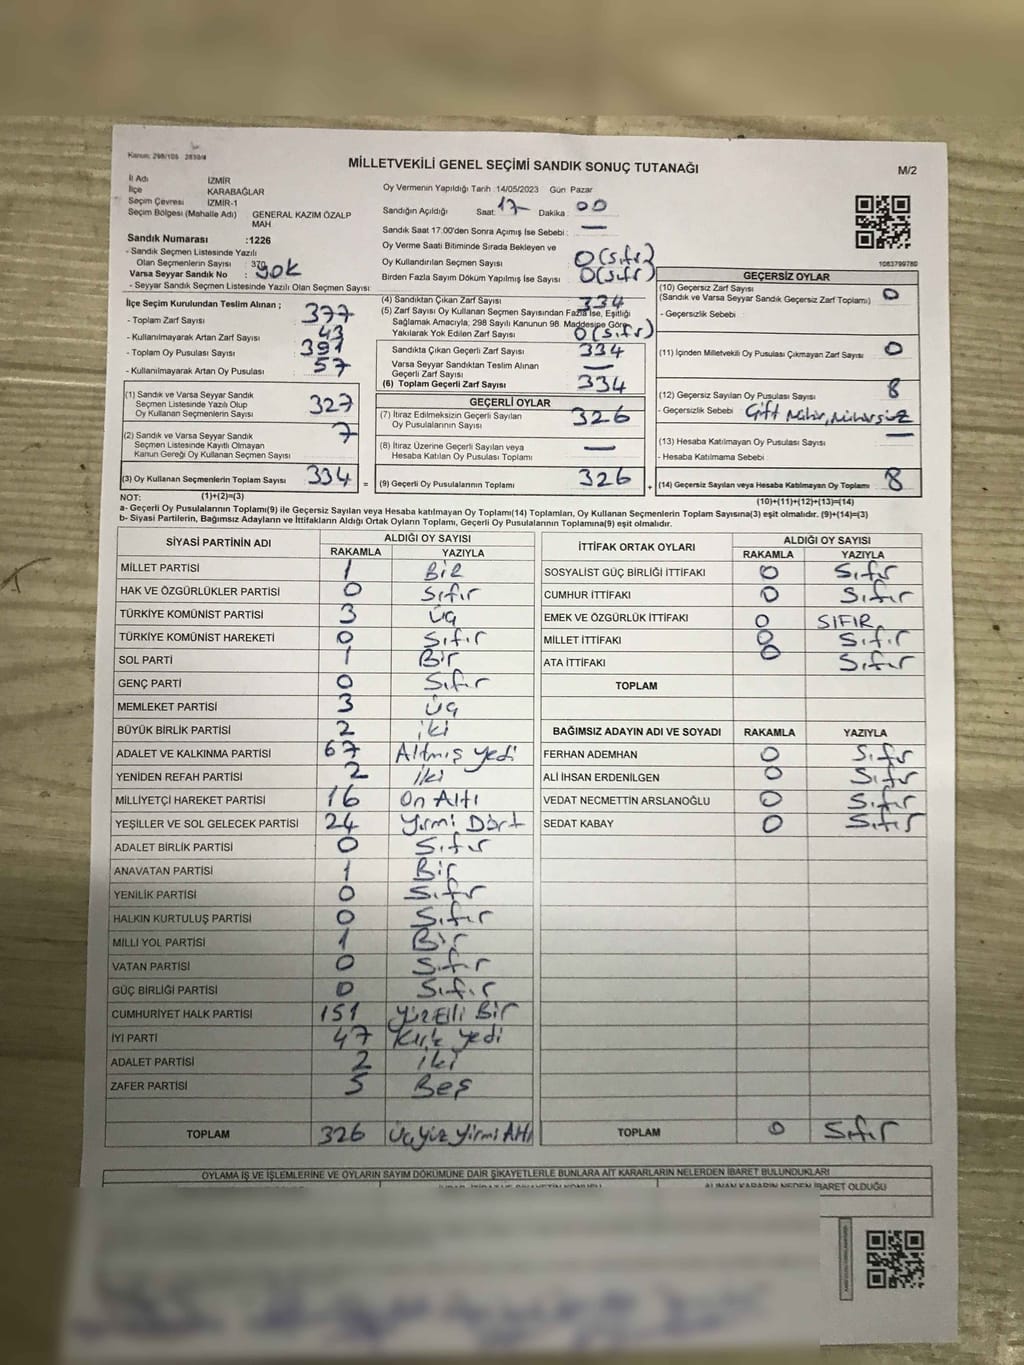 Kanun: 298/105 2839/4
MİLLETVEKİLİ GENEL SEÇİMİ SANDIK SONUÇ TUTANAĞI
M/2
İl Adı İZMİR
İlçe KARABAĞLAR
Seçim Çevresi İZMİR-1
Seçim Bölgesi (Mahalle Adı) GENERAL KAZIM ÖZALP MAH
Sandık Numarası :1226
- Sandık Seçmen Listesinde Yazılı
Olan Seçmenlerin Sayısı : 370
Varsa Seyyar Sandık No : yok
- Seyyar Sandık Seçmen Listesinde Yazılı Olan Seçmen Sayısı:
Oy Vermenin Yapıldığı Tarih :14/05/2023 Gün Pazar
Sandığın Açıldığı Saat: 17 Dakika : 00
Sandık Saat 17:00'den Sonra Açımış İse Sebebi : —
Oy Verme Saati Bitiminde Sırada Bekleyen ve
Oy Kullandırılan Seçmen Sayısı : 0 (sıfır)
Birden Fazla Sayım Döküm Yapılmış İse Sayısı : 0 (sıfır)
1063799780
İlçe Seçim Kurulundan Teslim Alınan ;
- Toplam Zarf Sayısı 377
- Kullanılmayarak Artan Zarf Sayısı 43
- Toplam Oy Pusulası Sayısı 391
- Kullanılmayarak Artan Oy Pusulası 57
(1) Sandık ve Varsa Seyyar Sandık
Seçmen Listesinde Yazılı Olup
Oy Kullanan Seçmenlerin Sayısı 327
(2) Sandık ve Varsa Seyyar Sandık
Seçmen Listesinde Kayıtlı Olmayan
Kanun Gereği Oy Kullanan Seçmen Sayısı 7
(3) Oy Kullanan Seçmenlerin Toplam Sayısı 334
(4) Sandıktan Çıkan Zarf Sayısı 334
(5) Zarf Sayısı Oy Kullanan Seçmen Sayısından Fazla İse, Eşitliği
Sağlamak Amacıyla; 298 Sayılı Kanunun 98. Maddesine Göre
Yakılarak Yok Edilen Zarf Sayısı 0 (sıfır)
Sandıkta Çıkan Geçerli Zarf Sayısı 334
Varsa Seyyar Sandıktan Teslim Alınan
Geçerli Zarf Sayısı —
(6) Toplam Geçerli Zarf Sayısı 334
GEÇERLİ OYLAR
(7) İtiraz Edilmeksizin Geçerli Sayılan
Oy Pusulalarının Sayısı 326
(8) İtiraz Üzerine Geçerli Sayılan veya
Hesaba Katılan Oy Pusulası Toplamı —
= (9) Geçerli Oy Pusulalarının Toplamı 326
GEÇERSİZ OYLAR
(10) Geçersiz Zarf Sayısı
(Sandık ve Varsa Seyyar Sandık Geçersiz Zarf Toplamı) 0
- Geçersizlik Sebebi :
(11) İçinden Milletvekili Oy Pusulası Çıkmayan Zarf Sayısı 0
(12) Geçersiz Sayılan Oy Pusulası Sayısı 8
- Geçersizlik Sebebi : Çift Mühür, Mühürsüz
(13) Hesaba Katılmayan Oy Pusulası Sayısı —
- Hesaba Katılmama Sebebi :
+ (14) Geçersiz Sayılan veya Hesaba Katılmayan Oy Toplamı 8
NOT: (1)+(2)=(3)
(10)+(11)+(12)+(13)=(14)
a- Geçerli Oy Pusulalarının Toplamı(9) ile Geçersiz Sayılan veya Hesaba katılmayan Oy Toplamı(14) Toplamları, Oy Kullanan Seçmenlerin Toplam Sayısına(3) eşit olmalıdır. (9)+(14)=(3)
b- Siyasi Partilerin, Bağımsız Adayların ve İttifakların Aldığı Ortak Oyların Toplamı, Geçerli Oy Pusulalarının Toplamına(9) eşit olmalıdır.
SİYASİ PARTİNİN ADI ALDIĞI OY SAYISI
RAKAMLA YAZIYLA
MİLLET PARTİSİ 1 Bir
HAK VE ÖZGÜRLÜKLER PARTİSİ 0 Sıfır
TÜRKİYE KOMÜNİST PARTİSİ 3 Üç
TÜRKİYE KOMÜNİST HAREKETİ 0 Sıfır
SOL PARTİ 1 Bir
GENÇ PARTİ 0 Sıfır
MEMLEKET PARTİSİ 3 Üç
BÜYÜK BİRLİK PARTİSİ 2 iki
ADALET VE KALKINMA PARTİSİ 67 Altmış yedi
YENİDEN REFAH PARTİSİ 2 İki
MİLLİYETÇİ HAREKET PARTİSİ 16 On Altı
YEŞİLLER VE SOL GELECEK PARTİSİ 24 Yirmi Dört
ADALET BİRLİK PARTİSİ 0 Sıfır
ANAVATAN PARTİSİ 1 Bir
YENİLİK PARTİSİ 0 Sıfır
HALKIN KURTULUŞ PARTİSİ 0 Sıfır
MİLLİ YOL PARTİSİ 1 Bir
VATAN PARTİSİ 0 Sıfır
GÜÇ BİRLİĞİ PARTİSİ 0 Sıfır
CUMHURİYET HALK PARTİSİ 151 Yüzelli Bir
İYİ PARTİ 47 Kırk yedi
ADALET PARTİSİ 2 iki
ZAFER PARTİSİ 5 Beş
TOPLAM 326 Üçyüz Yirmi Altı
İTTİFAK ORTAK OYLARI ALDIĞI OY SAYISI
RAKAMLA YAZIYLA
SOSYALİST GÜÇ BİRLİĞİ İTTİFAKI 0 Sıfır
CUMHUR İTTİFAKI 0 Sıfır
EMEK VE ÖZGÜRLÜK İTTİFAKI 0 SIFIR
MİLLET İTTİFAKI 0 Sıfır
ATA İTTİFAKI 0 Sıfır
TOPLAM
BAĞIMSIZ ADAYIN ADI VE SOYADI RAKAMLA YAZIYLA
FERHAN ADEMHAN 0 Sıfır
ALİ İHSAN ERDENİLGEN 0 Sıfır
VEDAT NECMETTİN ARSLANOĞLU 0 Sıfır
SEDAT KABAY 0 Sıfır
TOPLAM 0 Sıfır
OYLAMA İŞ VE İŞLEMLERİNE VE OYLARIN SAYIM DÖKÜMÜNE DAİR ŞİKAYETLERLE BUNLARA AİT KARARLARIN NELERDEN İBARET BULUNDUKLARI
ALINAN KARARIN NEDEN İBARET OLDUĞU